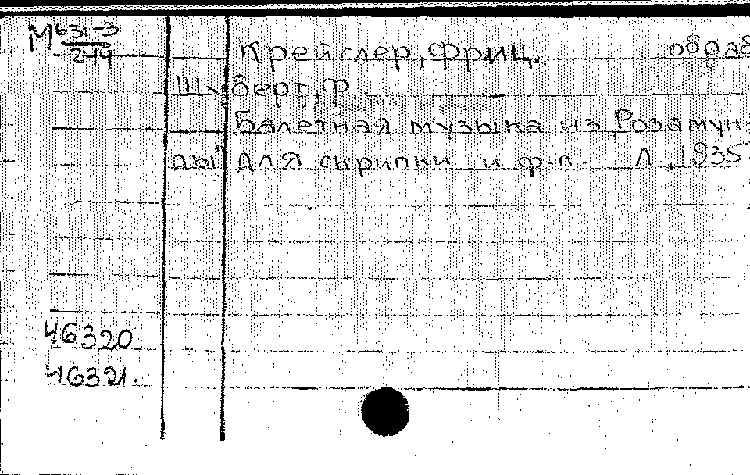 М 631-3
244
Крейслер, Фриц. обраб
Шуберт, Ф.
Балетная музыка из Розамун-
ды" для скрипки и ф-п. Л., 1935
46320
46321.